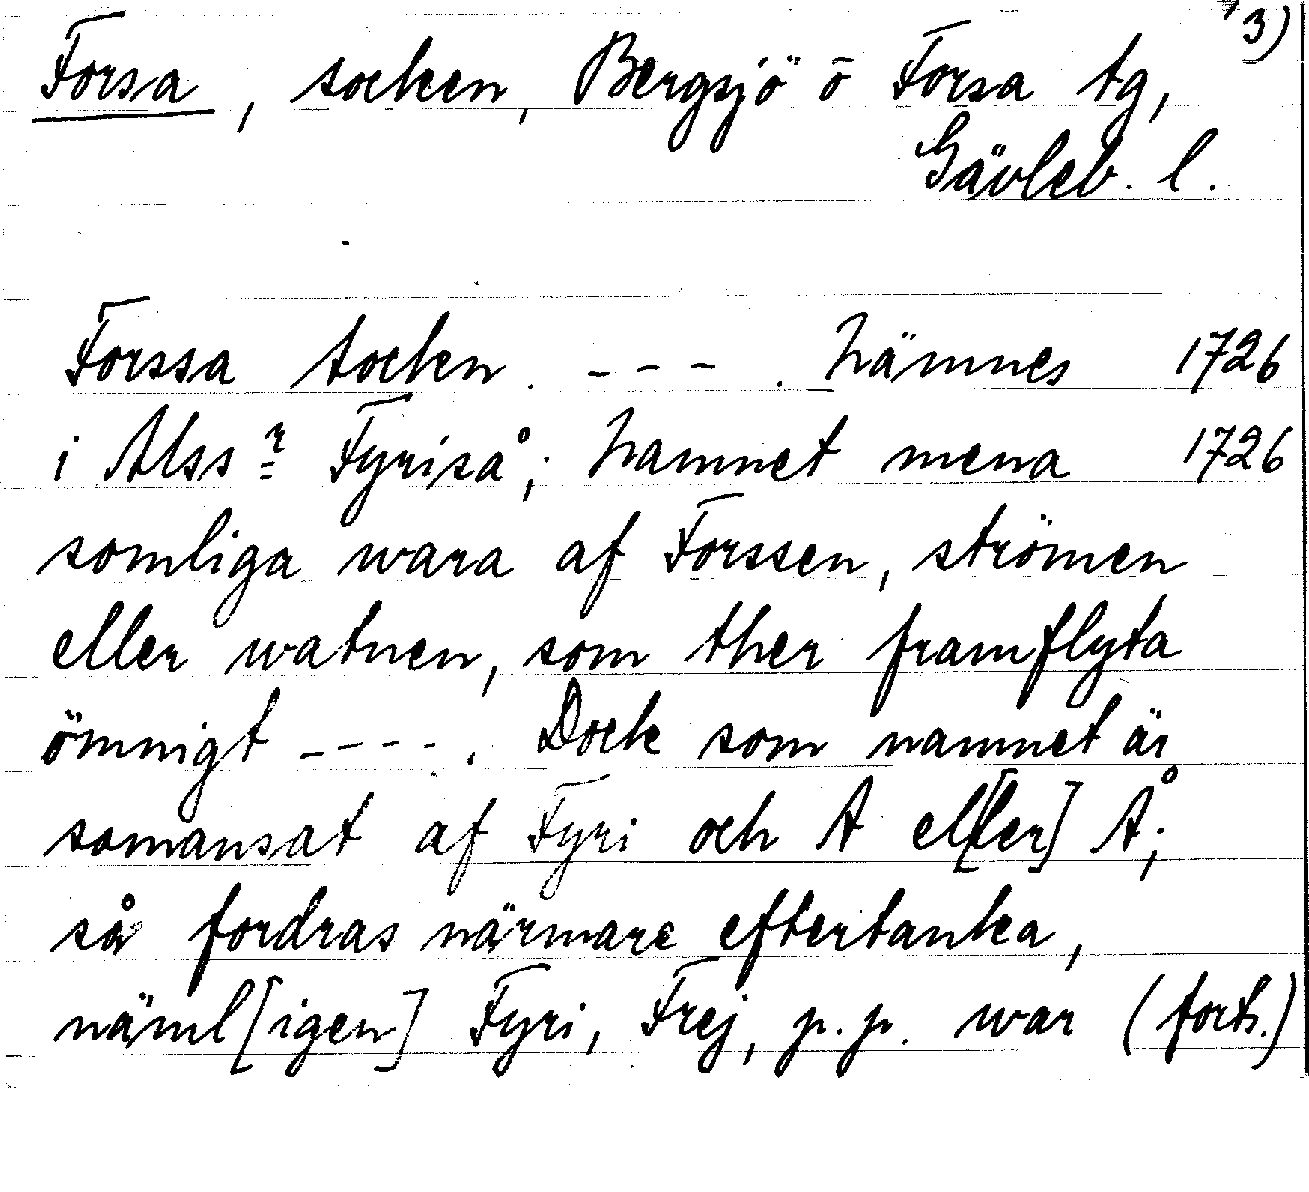 3)
Forsa, socken, Bergsjö o Forsa tg,
Gävleb. l.
Forssa Socken. - - - . Nämnes 1726
i Mssr Fyriså; Namnet mena 1726
somliga wara af Forssen, strömen
eller watnen, som ther framflyta
ömnigt - - - - . Dock som namnet är
somansat af Fyri och A el[ler] Å;
så fordras närmare eftertanka,
näml[igen] Fyri, Frej, p.p. war (forts.)